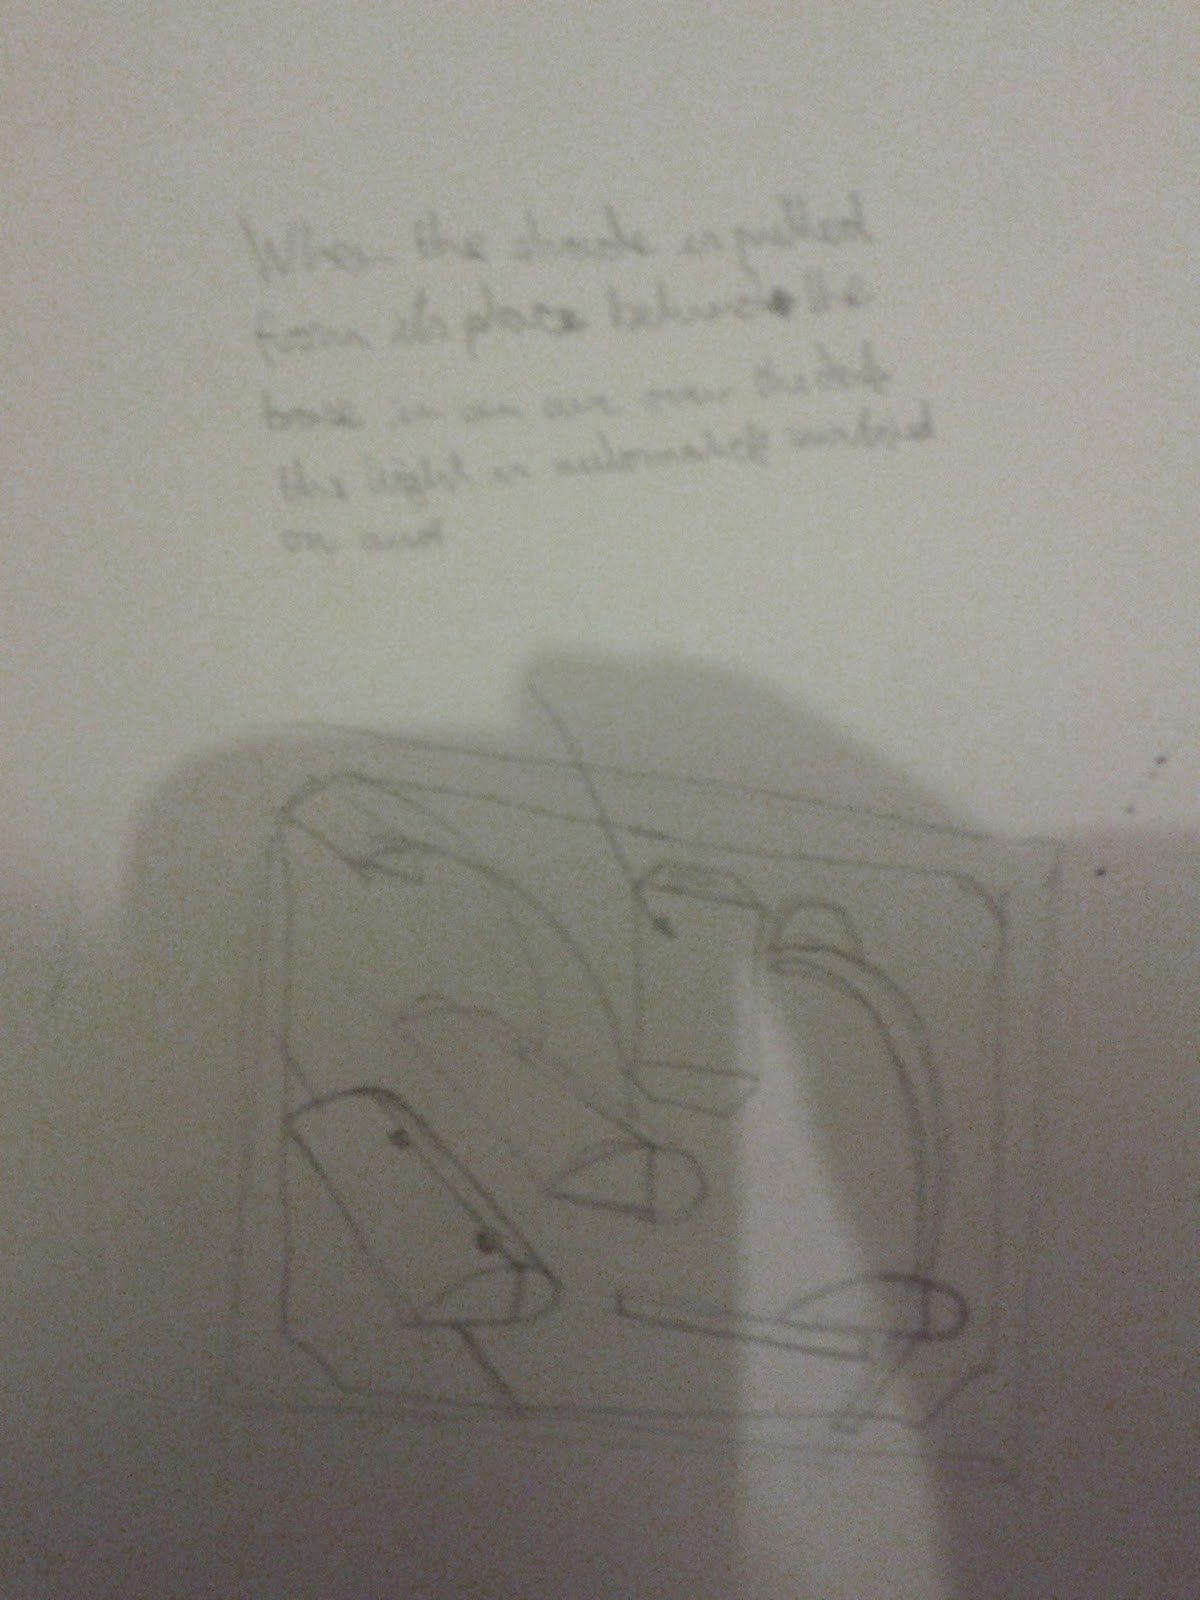 When the shade is pulled
from its place behind the
base in an arc over the desk
the light is automatically switched
on and